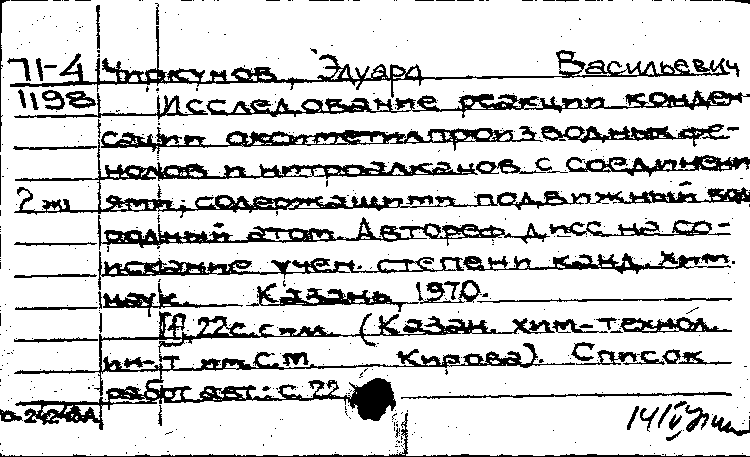 71-4 Чиркунов, Эдуард Васильевич
1198 Исследование реакции конден-
сации оксиметилпроизводных фе-
нолов и нитроалканов с соединени
2 ят ями, содержащими подвижный вод
родный атом. Автореф. дисс на со-
искание учен. степени канд. хим.
наук. Казань, 1970.
22 с. с илл. (Казан. хим-технол.
ин-т им. С.М. Кирова). Список
работ авт.: с. 22